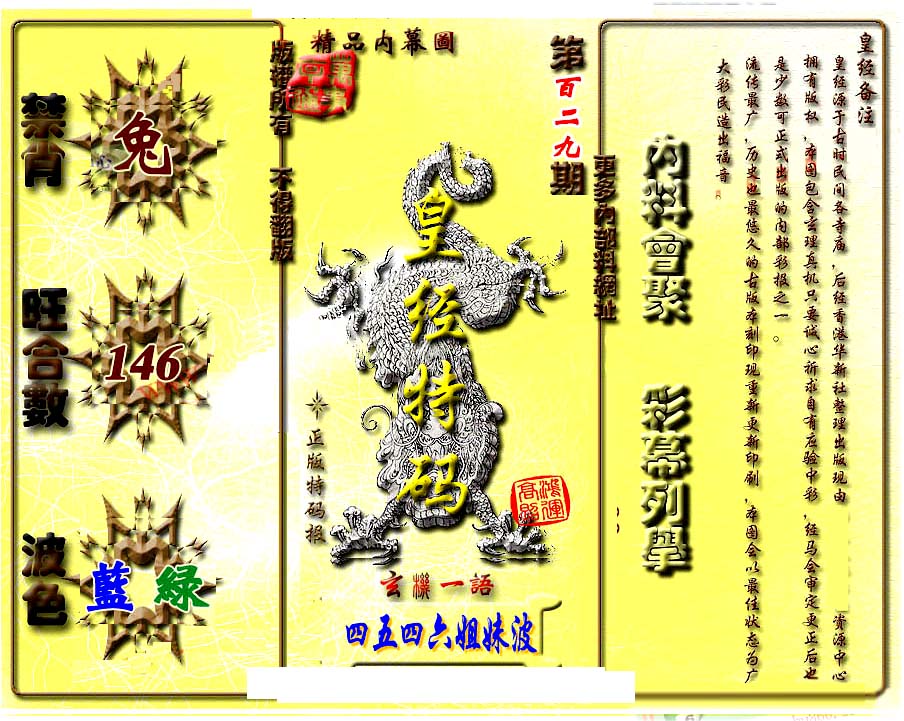 皇经备注
皇经源于古时民间各寺庙,后经香港华新社整理出版现由 资源中心
拥有版权,本图包含玄理真机只要诚心祈求自有应验中彩,经马会审定更正后也
是少数可正式出版的内部彩报之一。
流传最广,历史也最悠久的古版本刻印现重新更新印刷,本图会以最佳状态为广
大彩民造出福音
內料會聚 彩幕列舉
更多內部料網址
第百二九期
精品内幕圖
版權所有 不得翻版
皇经特码
正版特码报
鸿運高照
玄機一語
四五四六姐妹波
禁肖
兔
旺合數
146
波色
藍 綠